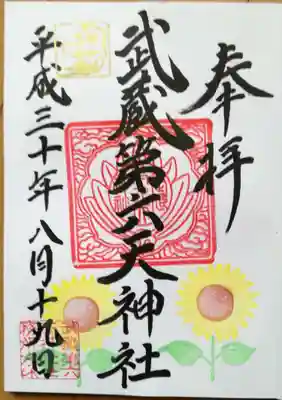 奉拝
武蔵第六天神社
平成三十年八月十九日